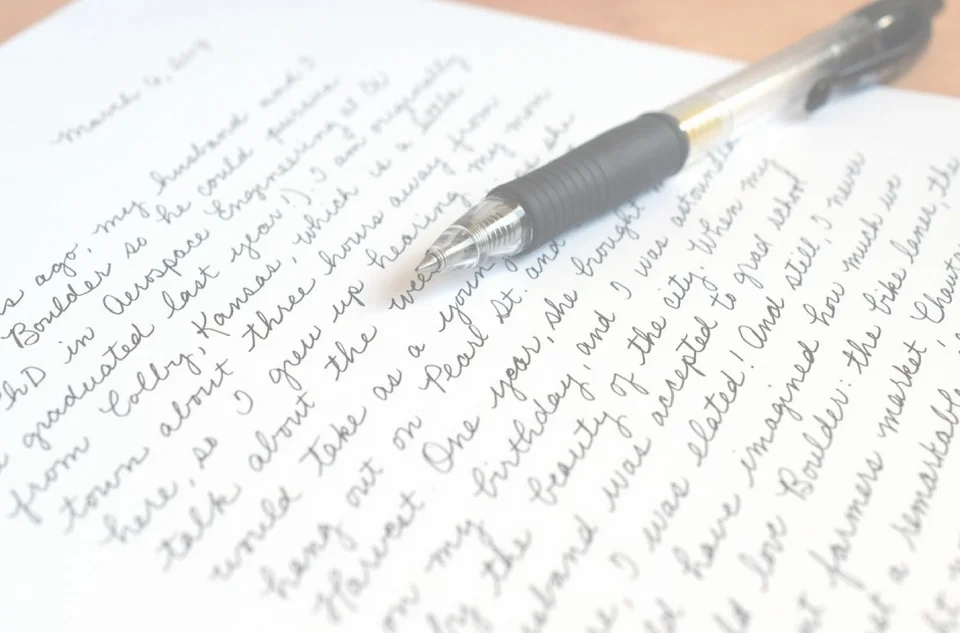 March 6,
ago, my husband and I
Boulder so he could pursue
PhD in Aerospace Engineering at CU
graduated last year!). I am originally
from Colby, Kansas, which is a little
town about three hours away from
here, so I grew up hearing my mom
talk about the she
would take as a young
hang out on Pearl St. and
Harvest One year, she brought
on my birthday, and I was astounded
by the beauty of the city. When my
husband was accepted to grad school
I was elated! And still, I never
have imagined how much we
love Boulder: the bike lanes, the
farmers market,
a remarkable